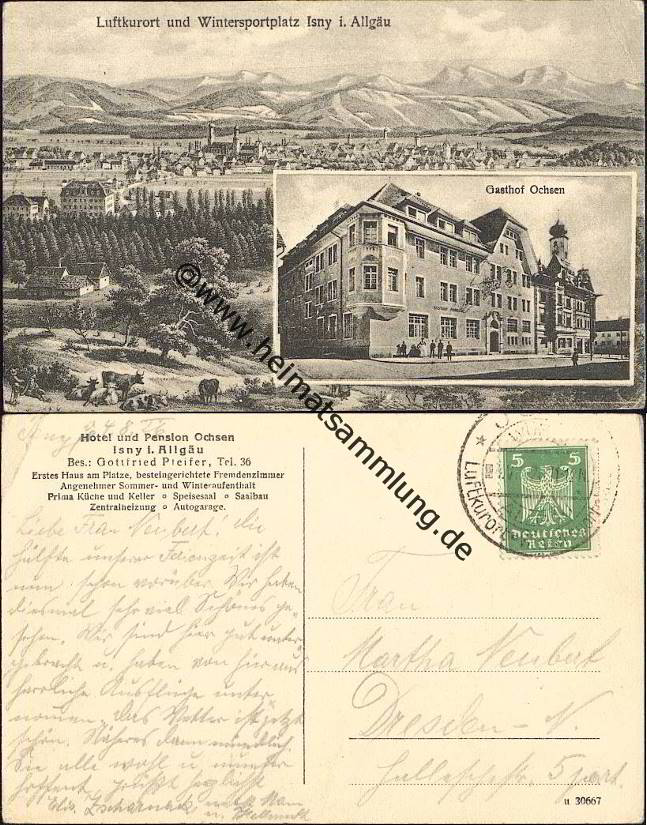 Luftkurort und Wintersportplatz Isny i. Allgäu
Gasthof Ochsen
©www.heimatsammlung.de
Hotel und Pension Ochsen
Isny i. Allgäu
Bes.: Gottfried Pfeifer, Tel. 36
Erstes Haus am Platze, besteingerichtete Fremdenzimmer
Angenehmer Sommer- und Winteraufenthalt
Prima Küche und Keller o Speisesaal o Saalbau
Zentralheizung o Autogarage.
Luftkurort
5 5
Deutsches
Reich
Liebe Frau Neubert! Die
Hälfte unserer Ferienzeit ist
nun schon vorüber. Wir haben
diesmal sehr viel Schönes ge-
sehen. Wir sind hier gut unter
gebracht u. haben von hier aus
herrliche Ausflüge unter
nommen. Das Wetter ist jetzt
schön. Näheres dann mündlich.
Sie alle wohl u. munter
hoffend, grüßt herzlichst
Frau
Martha Neubert
Dresden-N.
5
u 30667